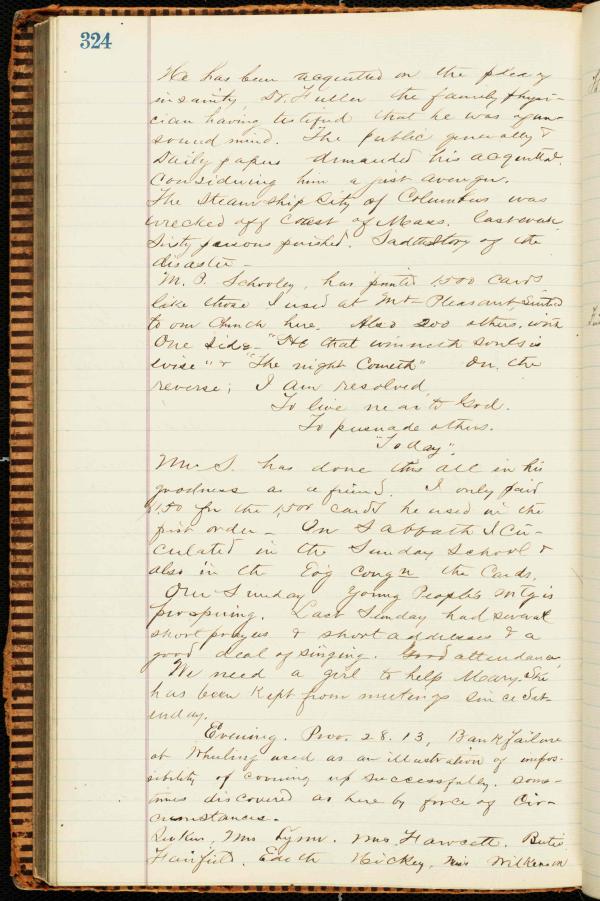 324
He has been acquitted on the plea of
insanity, Dr. Fuller the family physi-
cian having testified that he was of un-
sound mind. The public generally &
Daily papers demanded his acquittal.
Considering him a just avenger.
The Steam ship City of Columbus was
wrecked off Coast of Mass. last week.
Sixty persons perished. Sad the Story of the
disaster -
M. P. Schooley, has printed 1,500 cards
like those I used at Mt Pleasant, Suited
to our Church here. Also 200 others, with
One side - "He that winneth souls is
wise" & "The night Cometh" On the
reverse; I am resolved,
To live near to God.
To persuade others.
"Today".
Mr S. has done this all in his
goodness as a friend. I only paid
1,50 for the 1,500 cards he used in the
first order - On Sabbath I Cir-
culated in the Sunday School &
also in the Eog Congn the Cards.
Our Sunday Young People's mtg is
prospering. Last Sunday had several
short prayers & short addresses & a
good deal of singing. Good attendance.
We need a girl to help Mary. She
has been Kept from meetings since Sat-
urday.
Evening. Prov. 28.13, Bank failure
at Wheeling used as an illustration of impos-
sibility of coming up successfully. Some-
times discovered as here by force of Cir-
cumstances.
Mrs Lynn. Mrs. Fawcett.
Fairfield. Edith Hickey, Miss Wilkinson